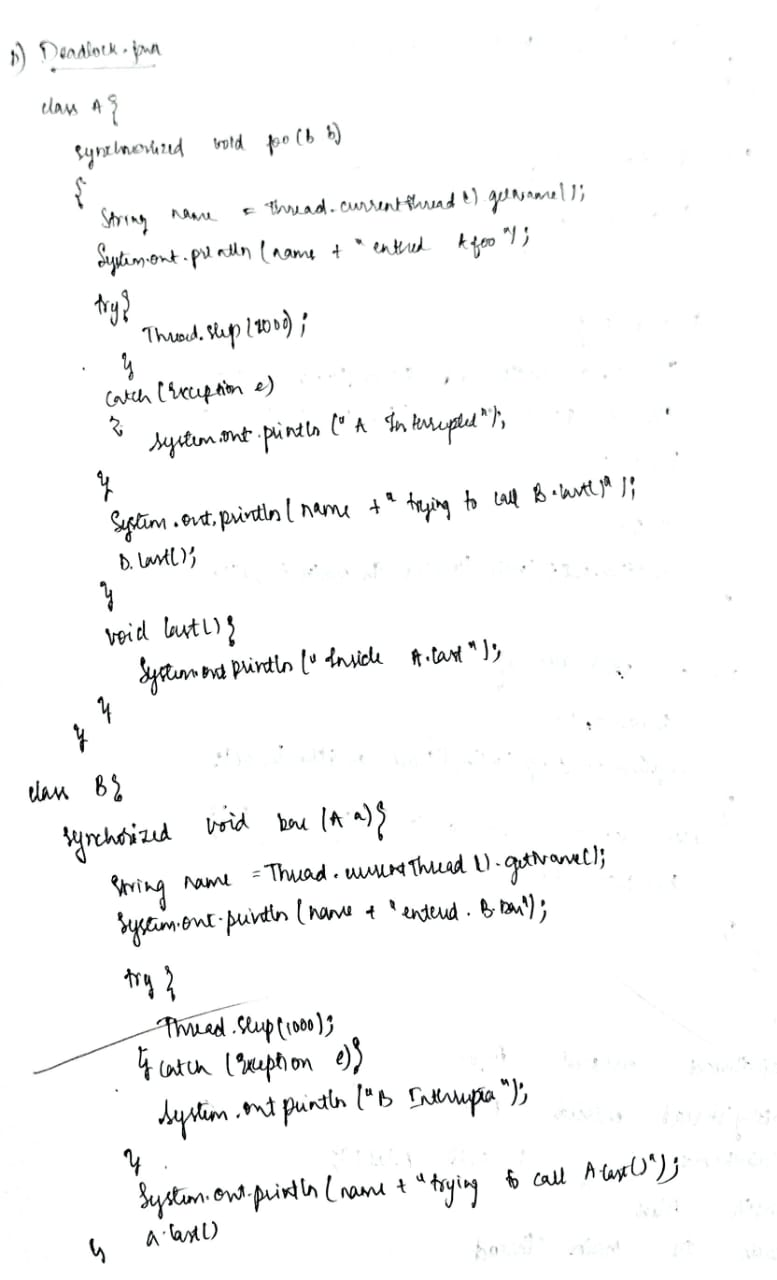 b) Deadlock.java
class A {
synchronized void foo (b b)
{
String name = Thread.currentThread().getName();
System.out.println (name + " entred A foo");
try {
Thread.sleep (1000);
}
catch (Exception e)
{
System.out.println (" A Interrupted");
}
System.out.println ( name + " trying to call B.last()" );
b.last();
}
void last() {
System.out.println (" Inside A.last");
}
}
class B {
Synchorized void bar (A a) {
String name = Thread.currentThread ().getName();
System.out.println (name + " enterd. B.bar");
try {
Thread.sleep (1000);
} catch (Exception e) {
System.out println ("B Interrupted");
}
System.out.println (name + " trying to call A.last()");
a.last()
}